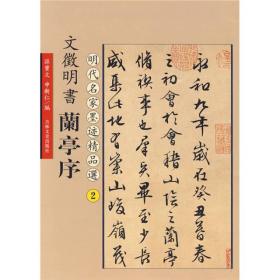 永和九年歲在癸丑暮春
之初會於會稽山陰之蘭亭
脩禊事也羣賢畢至少長
咸集此地有崇山峻嶺茂
明代名家墨迹精品選
2
文徵明書
蘭亭序
孫寶文 編
吉林文史出版社